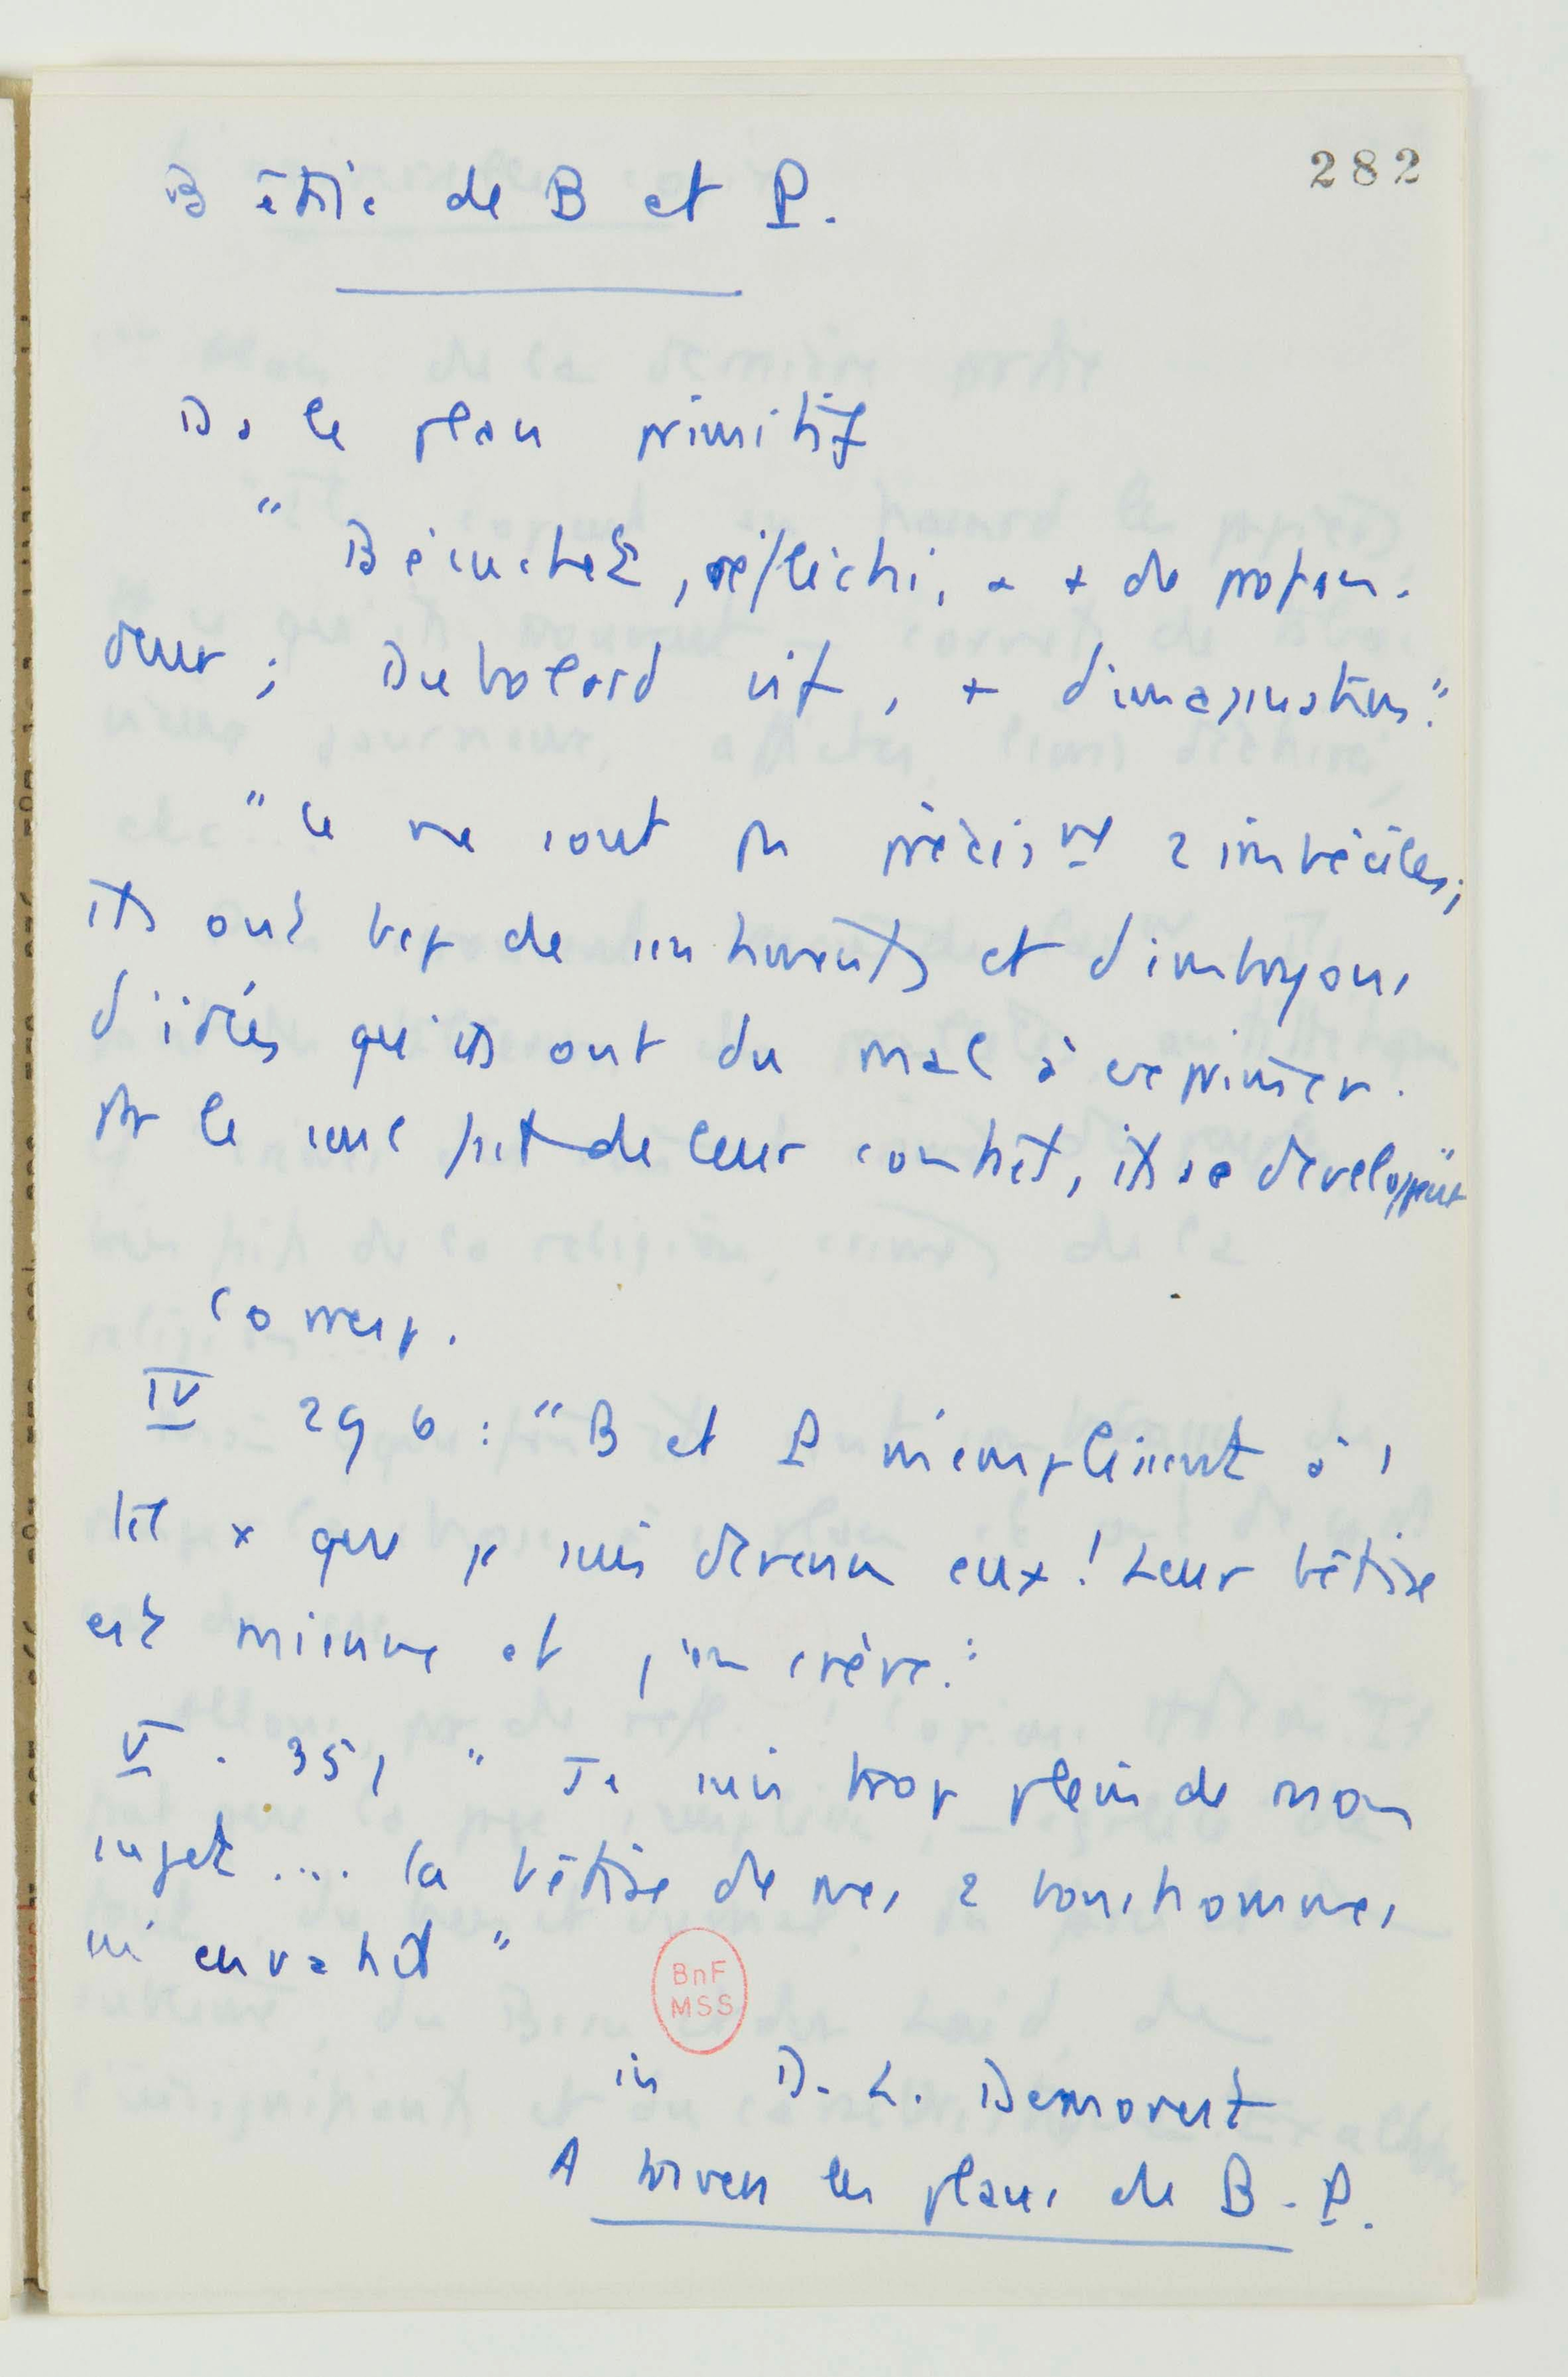 282
Bêtise de B et P.
Ds le plan primitif
" Bécuchet, réfléchi, a + de profon-
deur ; Dubolard vif, + d'imagination."
" Ce ne sont pas précisᵐᵗ 2 imbéciles;
ils ont bcp de sentiments et d'embryons
d'idées qu'ils ont du mal à exprimer.
Par le seul fait de leur contact, ils se développent"
Corresp.
IV 296 : "B et P m'emplissent à
tel x que je suis devenu eux ! Leur bêtise
est mienne et j'en crève."
V. 351 " Je suis trop plein de mon
sujet .... la bêtise de mes 2 bonshommes
m'envahit "
BnF
MSS
in D. L. Demorest
A travers les plans de B. P.